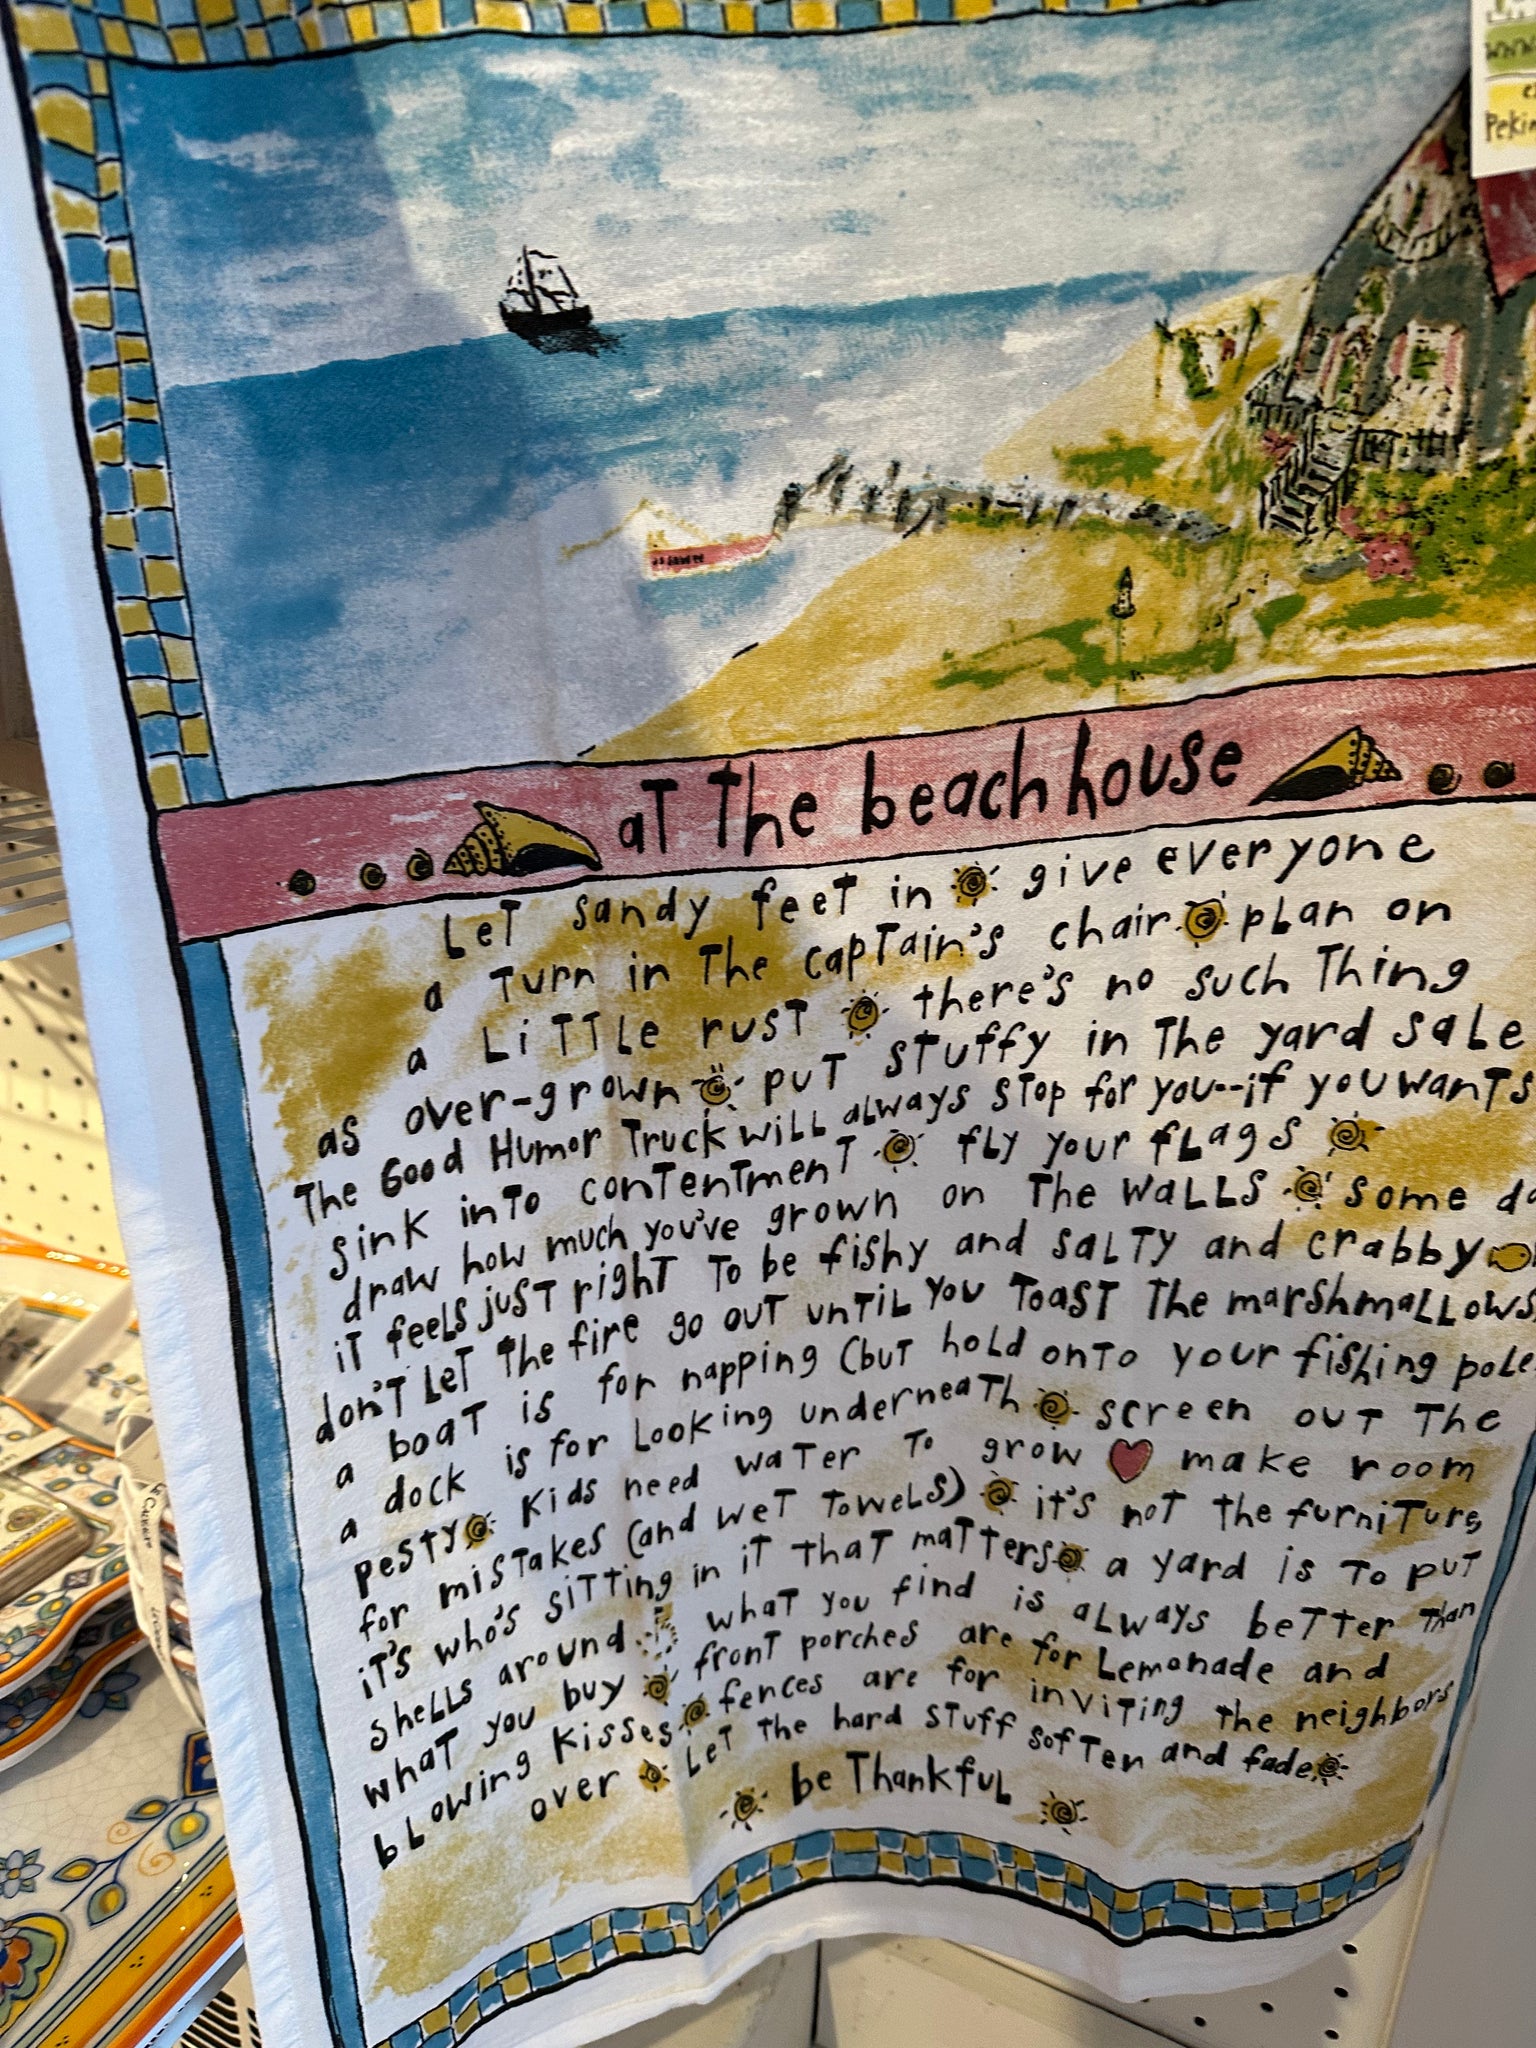 at the beach house
Let sandy feet in give everyone
a turn in the captain's chair plan on
a little rust there's no such thing
as over-grown put stuffy in the yard sale
the Good Humor Truck will always stop for you--if you want
sink into contentment fly your flags
draw how much you've grown on the walls some
it feels just right to be fishy and salty and crabby
don't let the fire go out until you toast the marshmallows
a boat is for napping (but hold onto your fishing pole
a dock is for looking underneath screen out the
pesty kids need water to grow make room
for mistakes (and wet towels) it's not the furniture,
it's who's sitting in it that matters a yard is to put
shells around what you find is always better than
what you buy front porches are for lemonade and
blowing kisses fences are for inviting the neighbors
over let the hard stuff soften and fade
be thankful